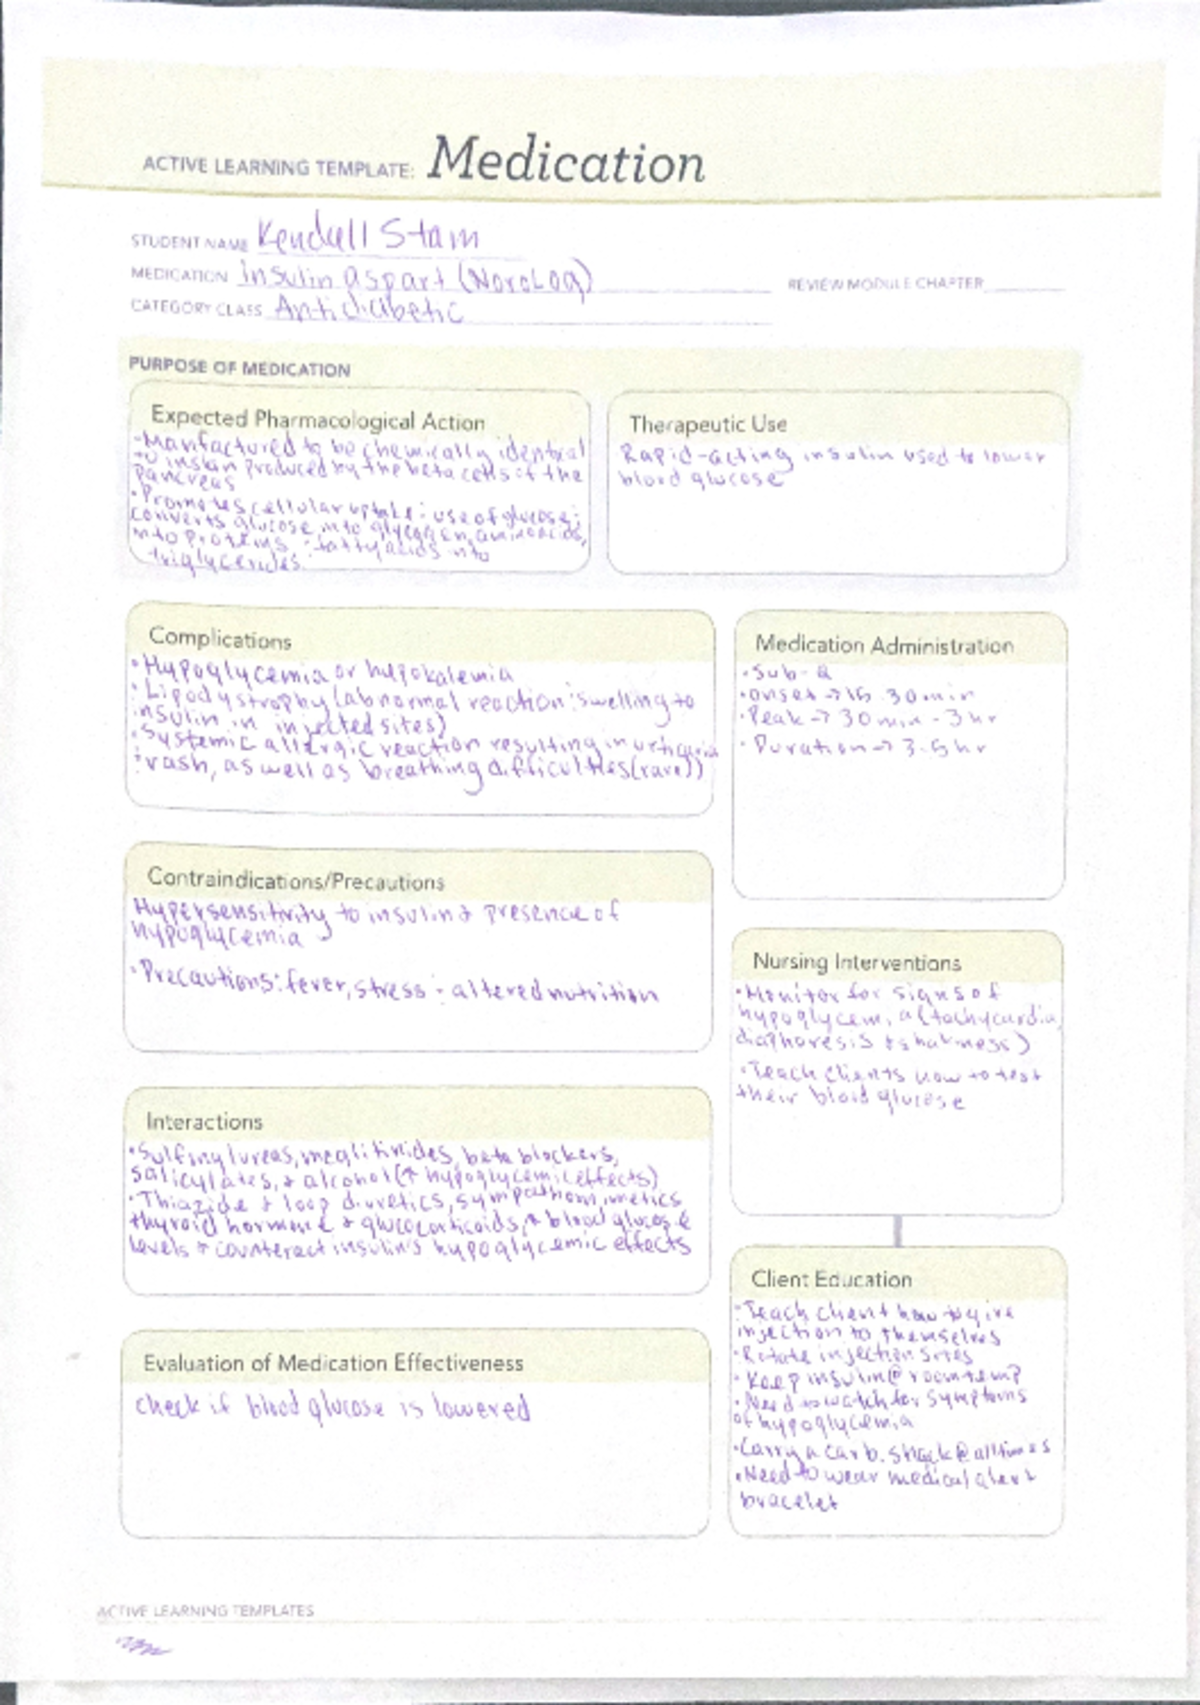 ACTIVE LEARNING TEMPLATE: Medication
STUDENT NAME Kendall Stam
MEDICATION Insulin aspart (NovoLog)
REVIEW MODULE CHAPTER
CATEGORY CLASS Antidiabetic
PURPOSE OF MEDICATION
Expected Pharmacological Action
•Manfactured to be chemically identical
to insulin produced by the beta cells of the
pancreas
•Promotes cellular uptake : use of glucose;
converts glucose into glycogen, amino acids,
into proteins : fatty acids into
triglycerides.
Therapeutic Use
Rapid-acting insulin used to lower
blood glucose
Complications
•Hypoglycemia or hypokalemia
•Lipodystrophy (abnormal reaction : swelling to
insulin in injected sites)
•Systemic allergic reaction resulting in urticaria
: rash, as well as breathing difficulties (rare))
Medication Administration
•Sub-Q
•onset → 15-30 min
•Peak → 30 min - 3 hr
•Duration → 3-5 hr
Contraindications/Precautions
Hypersensitivity to insulin & presence of
hypoglycemia
•Precautions: fever, stress : altered nutrition
Nursing Interventions
•Monitor for signs of
hypoglycemia (tachycardia,
diaphoresis & shakiness)
•Teach clients how to test
their blood glucose
Interactions
•Sulfinylureas, meglitinides, beta blockers,
salicylates, & alcohol (↑ hypoglycemic effects)
•Thiazide & loop diuretics, sympathomimetics,
thyroid hormone & glucocorticoids, ↑ blood glucose
levels & counteract insulin's hypoglycemic effects
Client Education
•Teach client how to give
injection to themselves
•Rotate injection sites
•Keep insulin @ room temp
•Need to watch for symptoms
of hypoglycemia
•Carry a carb. snack @ all times
•Need to wear medical alert
bracelet
Evaluation of Medication Effectiveness
Check if blood glucose is lowered
ACTIVE LEARNING TEMPLATES